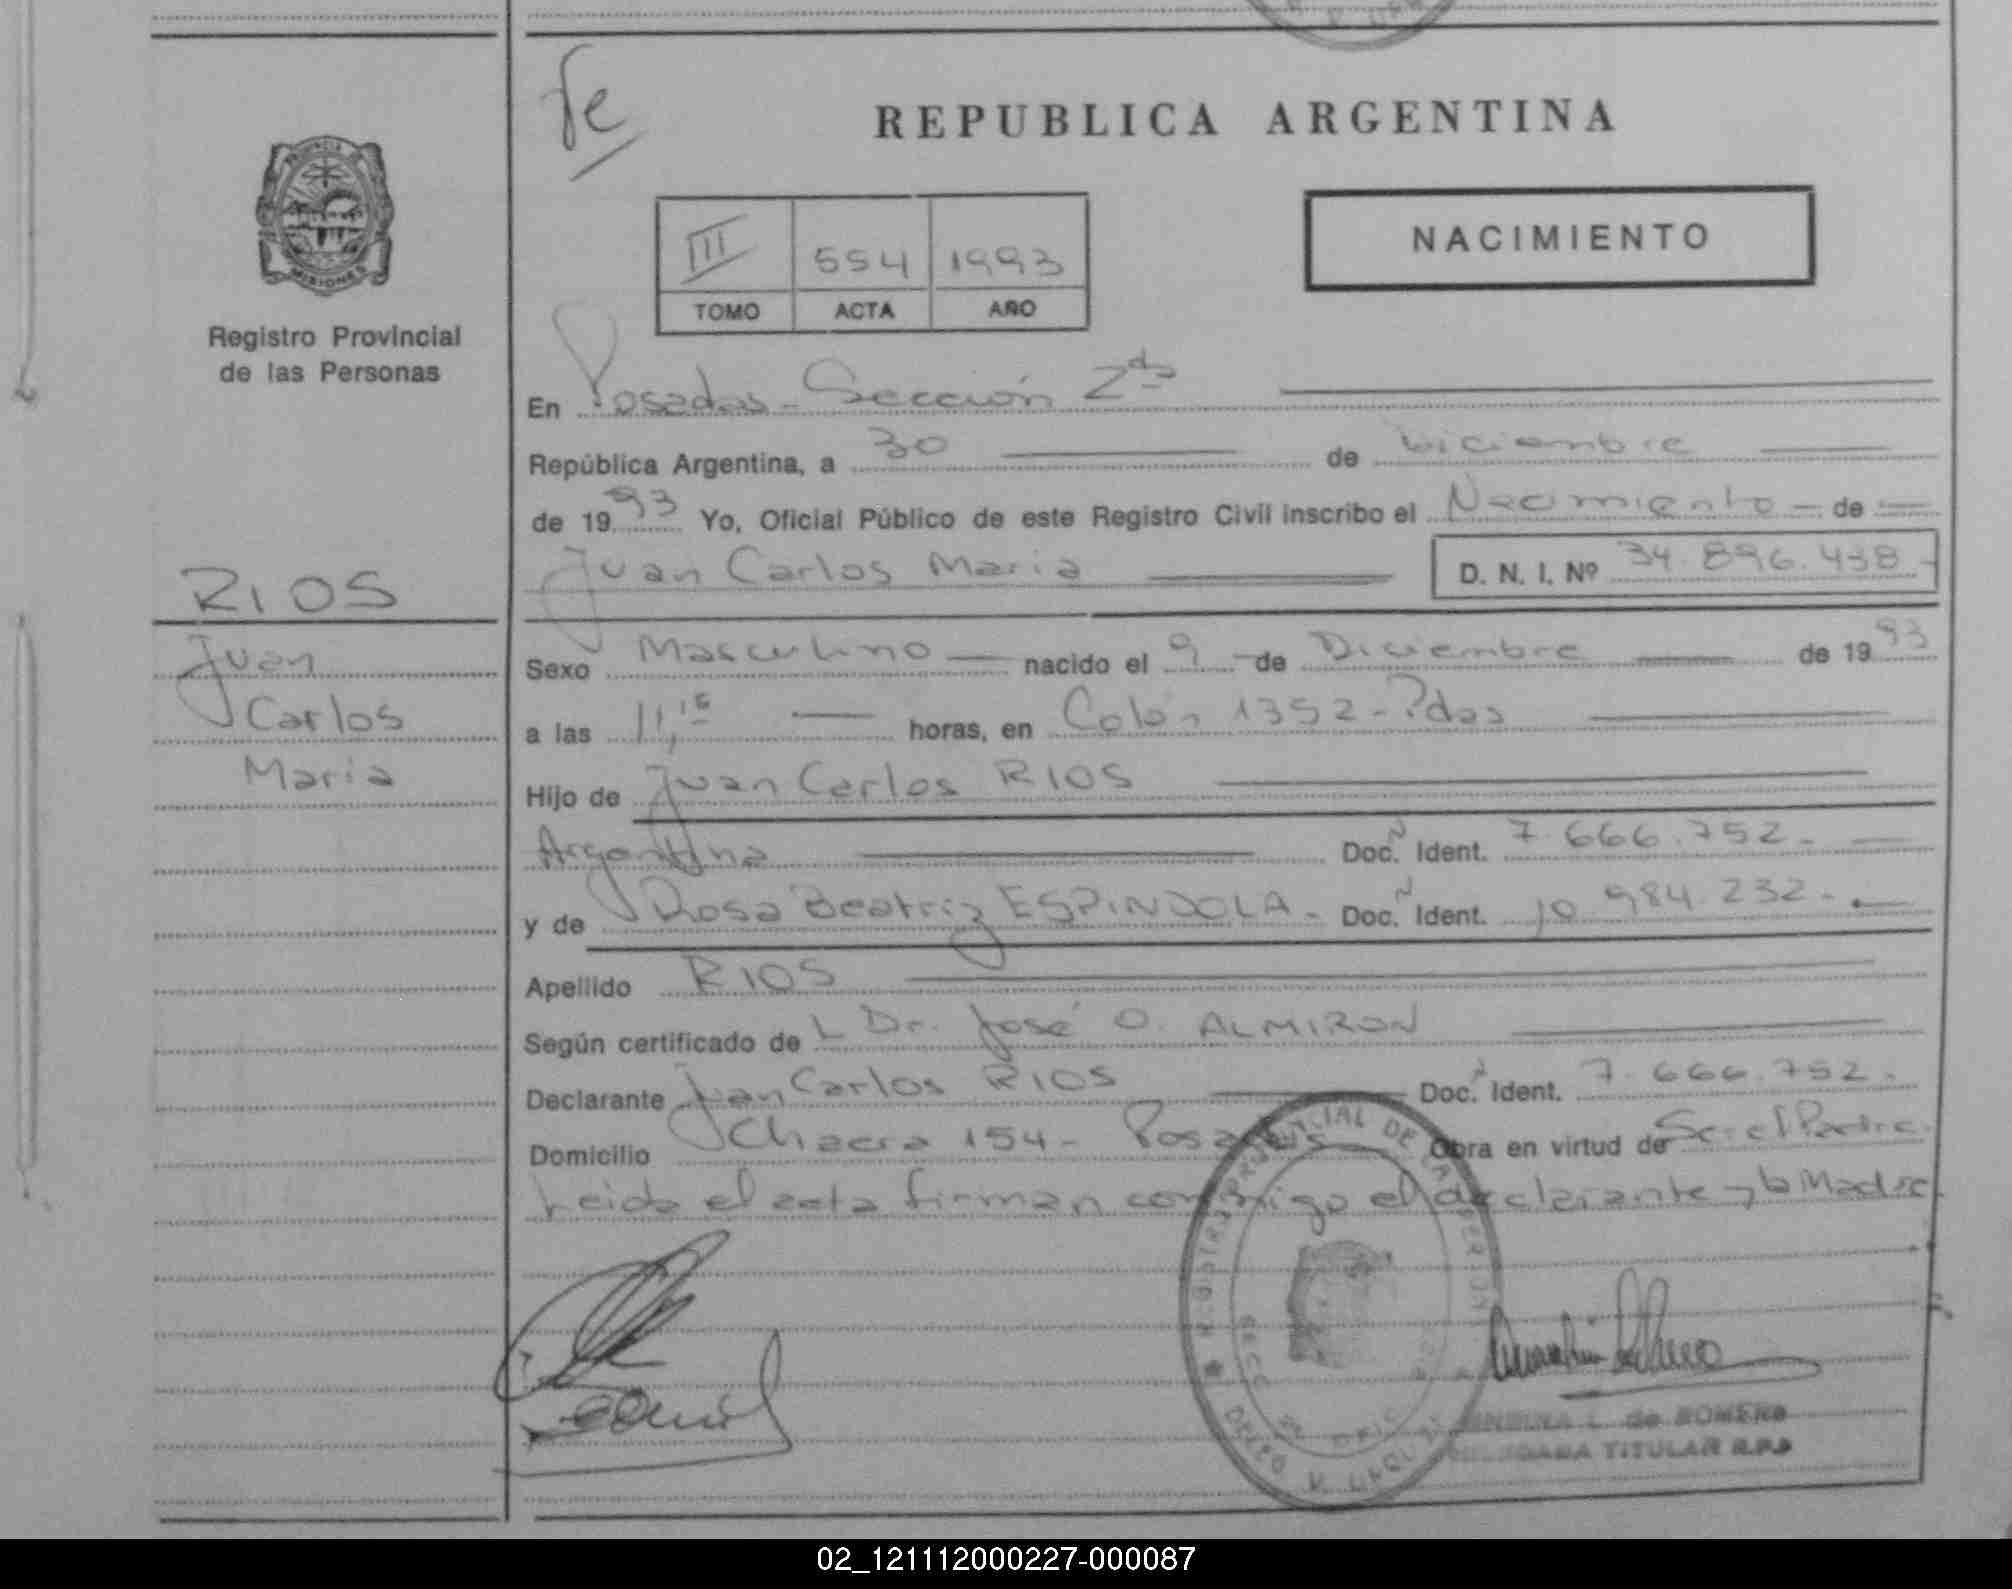 Fe
REPUBLICA ARGENTINA
PROVINCIA DE
MISIONES
Registro Provincial
de las Personas
NACIMIENTO
III 554 1993
TOMO ACTA AÑO
En Posadas - Sección 2da
República Argentina, a 30 de Diciembre
de 1993 Yo, Oficial Público de este Registro Civil inscribo el Nacimiento - de
Juan Carlos Maria D. N. I. Nº 34.896.438-
RIOS
Juan
Carlos
Maria
Sexo Masculino nacido el 9 - de Diciembre de 1993
a las 11,15 horas, en Colón 1352 - Pdas
Hijo de Juan Carlos RIOS
Argentina Doc. Ident. 7.666.752.-
y de Rosa Beatriz ESPINDOLA. Doc. Ident. 10.984.232.-
Apellido RIOS
Según certificado de L Dr. José O. ALMIRON
Declarante Juan Carlos RIOS Doc. Ident. 7.666.752.
Domicilio Chacra 154 - Posadas Obra en virtud de Ser el Padre.
Leida el acta firman conmigo el declarante y la Madre.
L. de ROMERO
TITULAR R.P.P
02_121112000227-000087